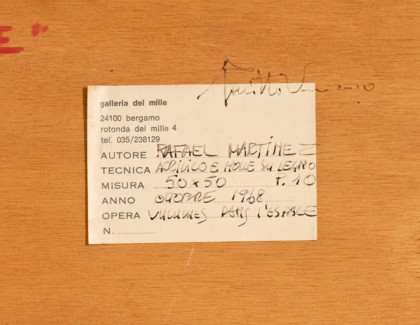 E"
galleria del mille
24100 bergamo
rotonda dei mille 4
tel. 035/238129
AUTORE RAFAEL MARTINEZ
TECNICA ACRILICO E MOLLE SU LEGNO
MISURA 50x50 P.10
ANNO OTTOBRE 1968
OPERA VOLUMES DANS L'ESPACE
N.